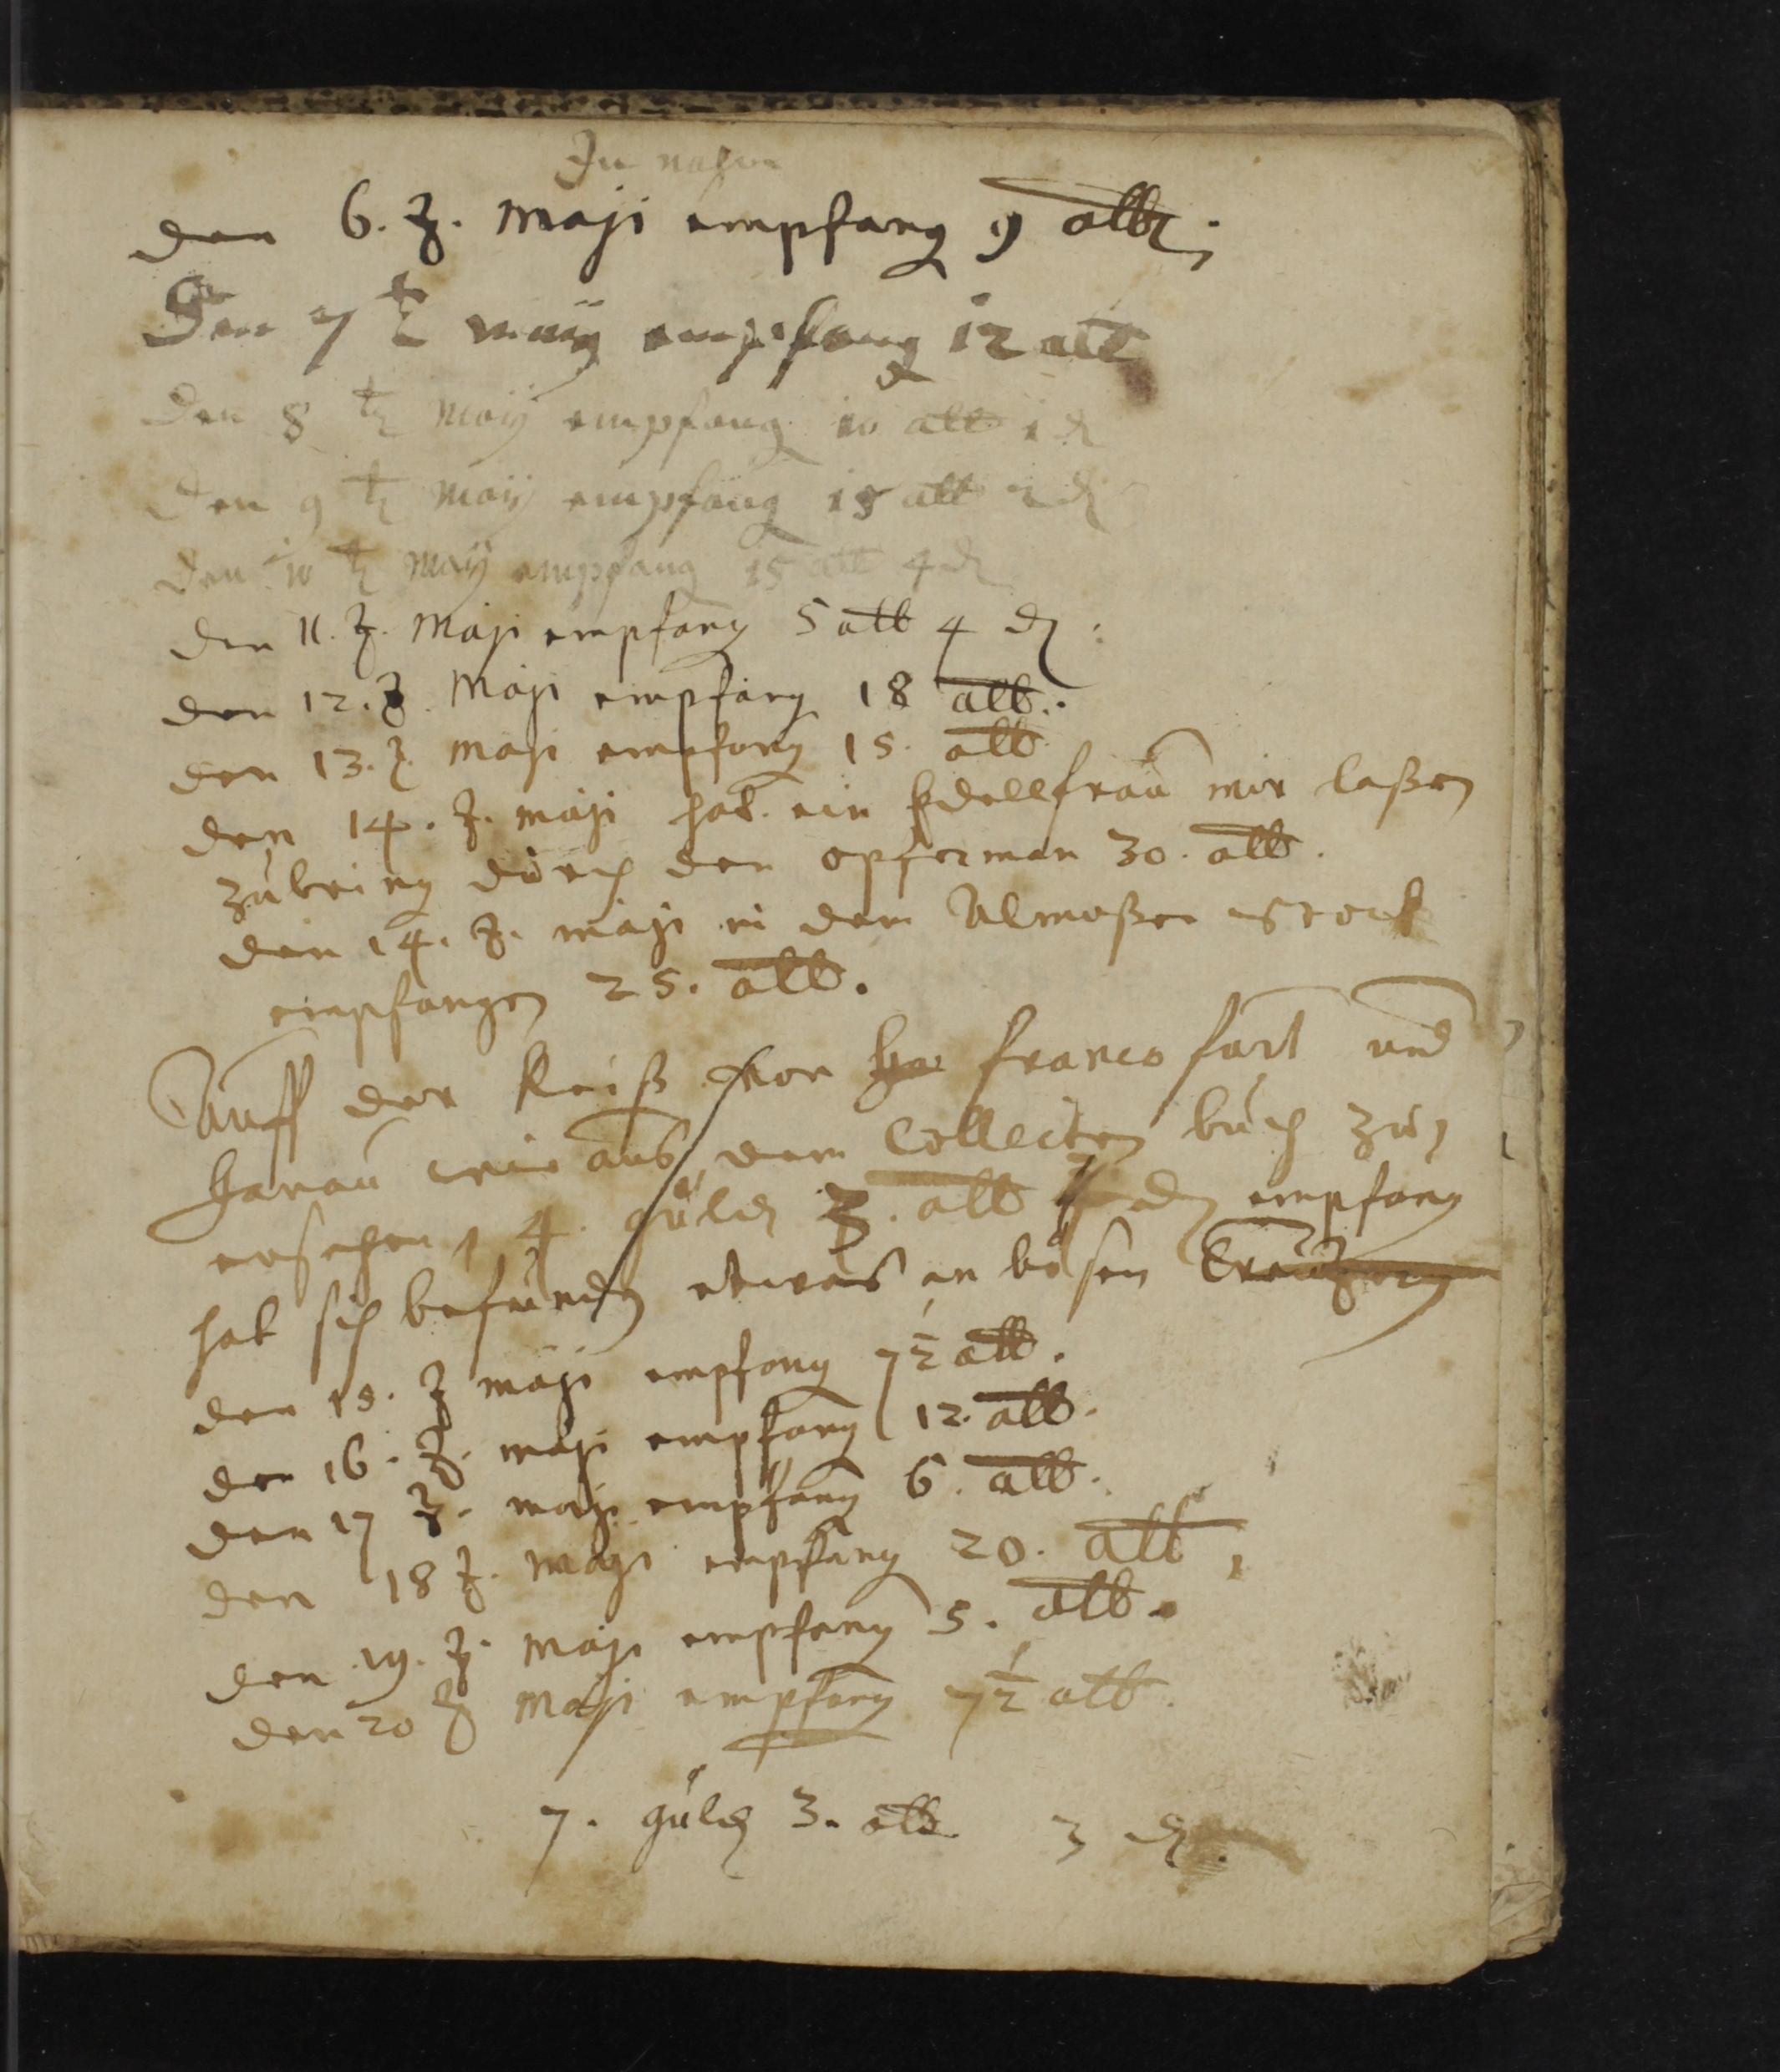 den 6. t. Maji empfang 9 alb.
Den 7 t. maij empfang 12 alb
Den 8 t. Maij empfang 10 alb 1 d
Den 9 t. Maij empfang 18 alb 2 d
Den 10 t. Maij empfang 15 alb 4 d
den 11. t. Maji empfang 5 alb 4 d :
den 12. t. Maji empfang 18 alb.
den 13. t. Maji empfang 15. alb
den 14. t. maji hat ein Edellfraŭ mir laßen
zŭbring dŭrch den opferman 30. alb.
den 14. t. maji in dem Almoßen stock
empfangen 25. alb.
Auff der Reiß von francofŭrt vnd
Hanaŭ wie aŭs dem Collecten bŭch zŭ
ersehen 14. gŭld 3. alb d empfang
hat sich befŭnden etwas an bösen Creŭtzern
den 15. t. maji empfang 7 1/2 alb.
den 16. t. maji empfang 12. alb.
den 17 t. maji empfang 6. alb.
den 18 t. maji empfang 20. alb.
den 19. t. Maji empfang 5. alb.
den 20 t. Maji empfang 7 1/2 alb.
7. gŭld 3. alb 3 d.